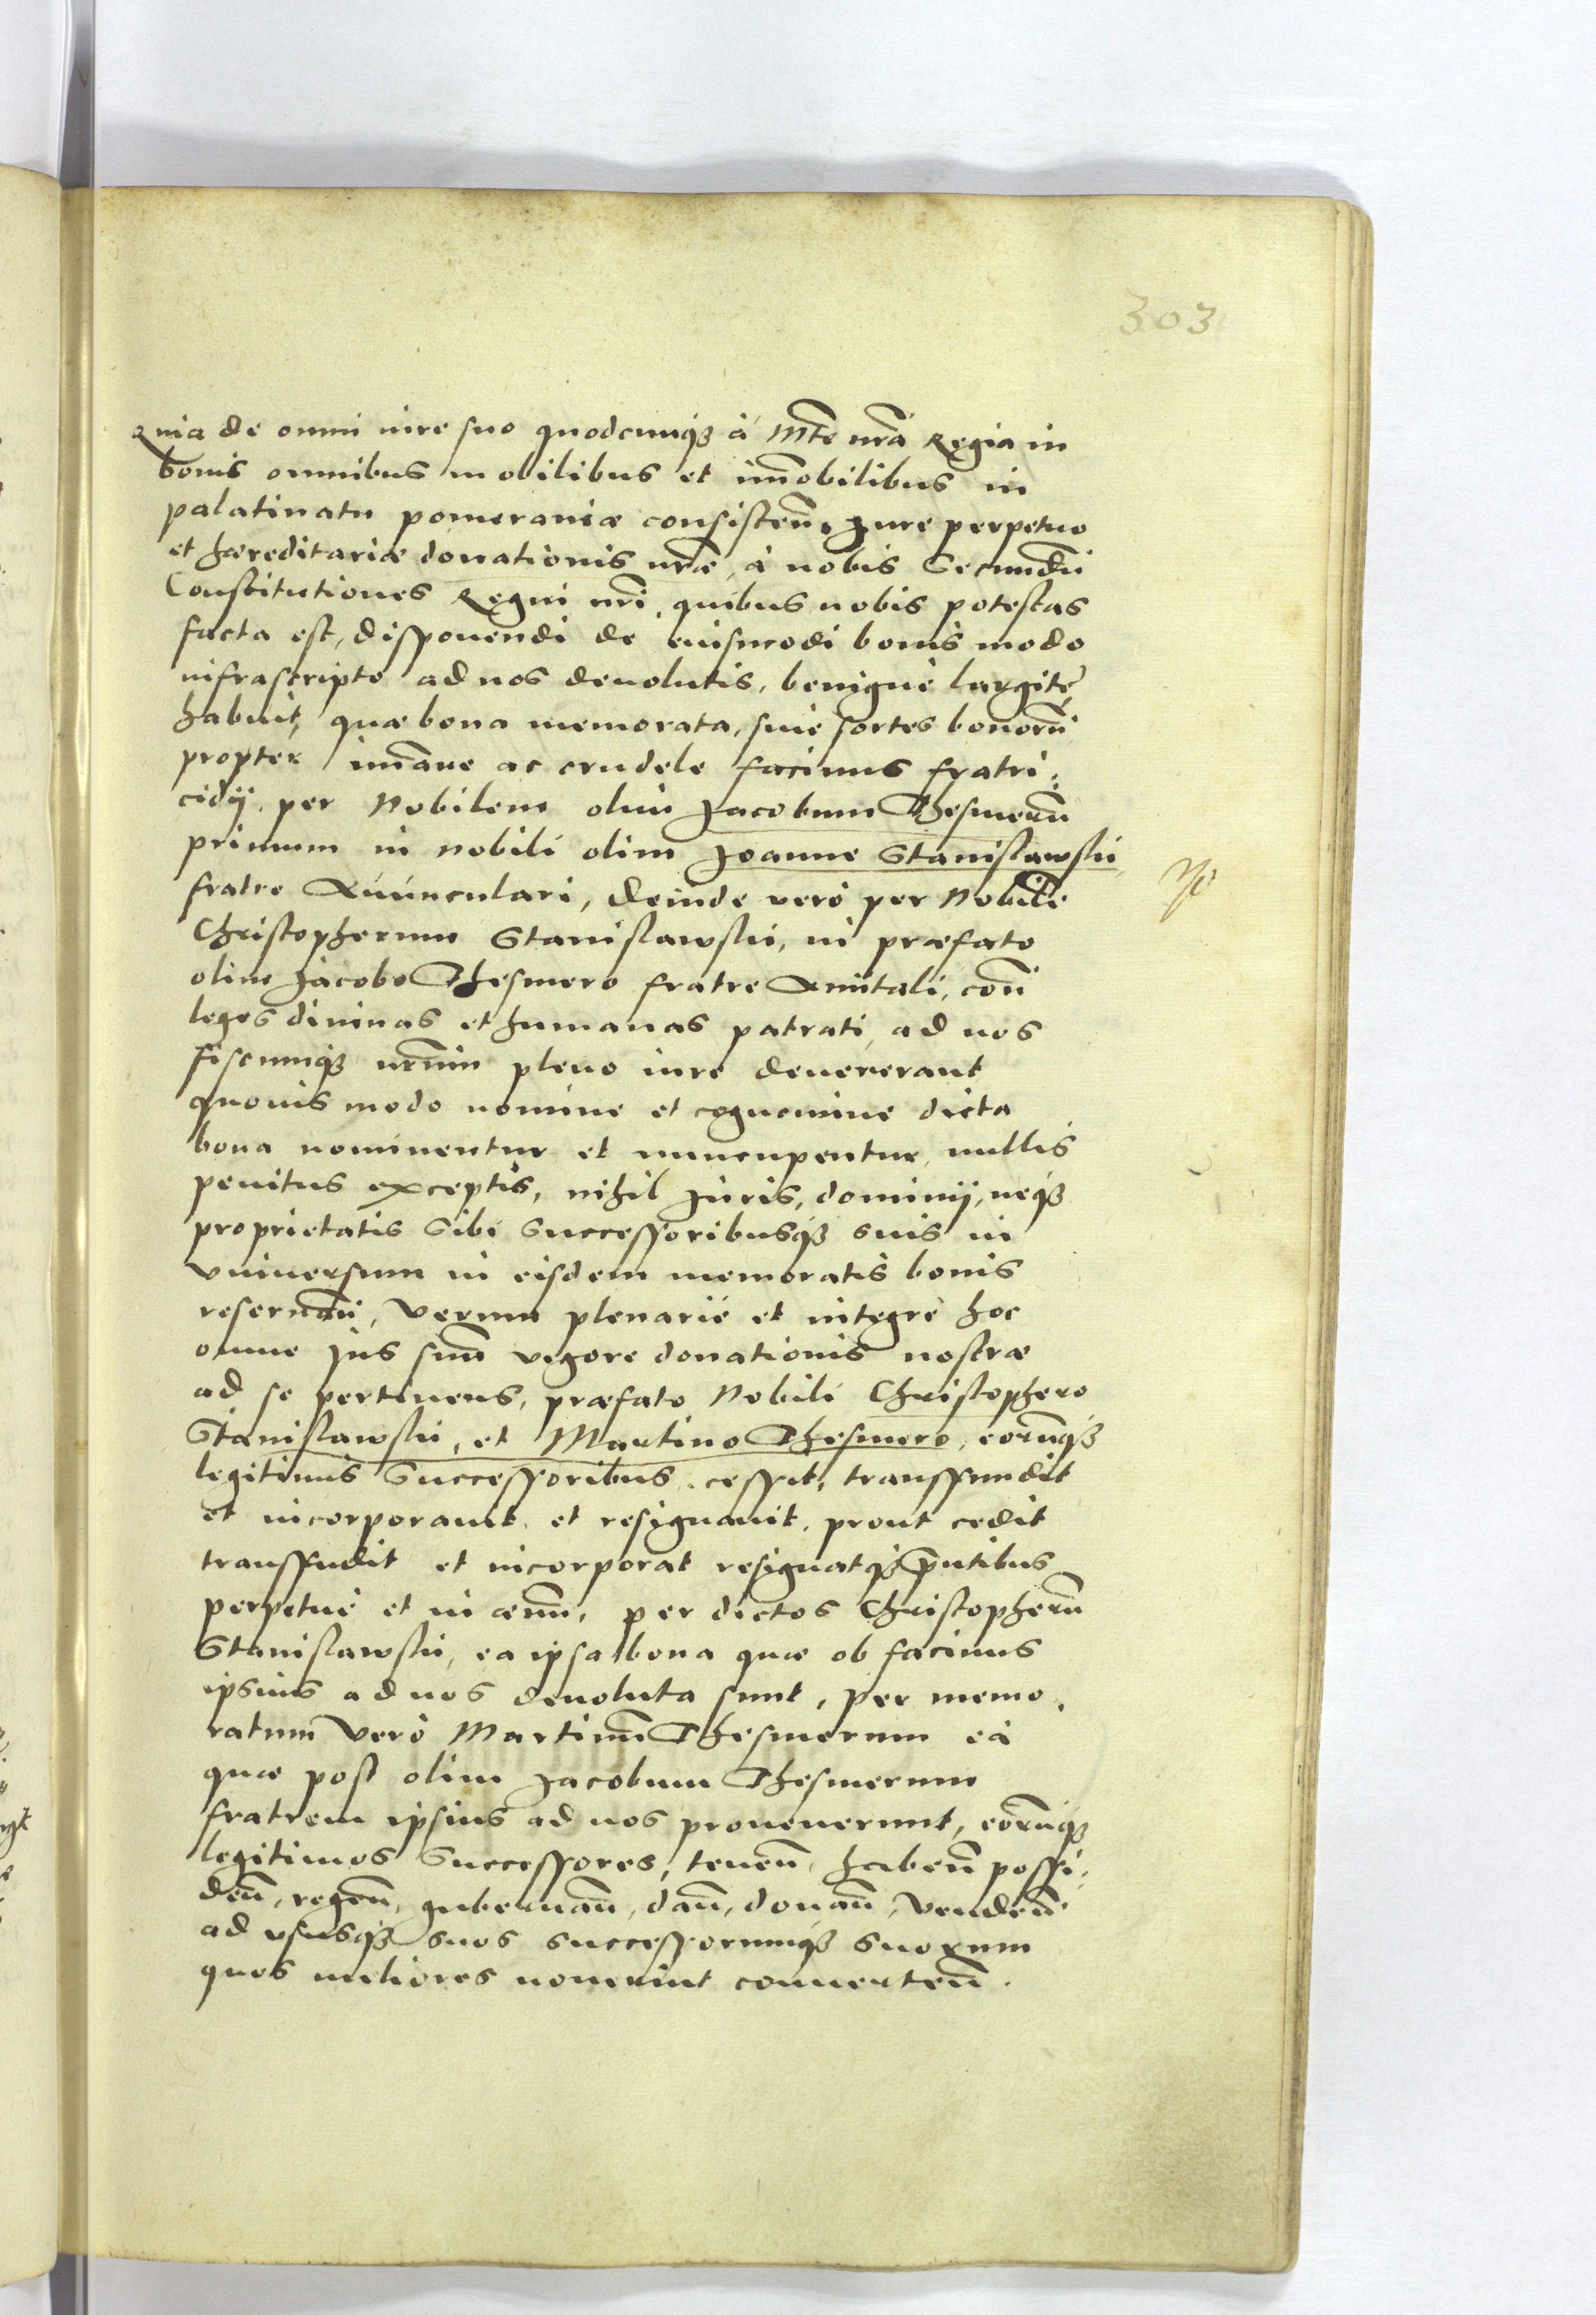 303
Quia de omni iure suo quodcunqꝫ à Mte nrã Regia in
bonis omnibus mobilibus et im̃obilibus in
palatinatu pomeraniæ consisteñ, Jure perpetuo
et hæreditariæ donationis nrẽ, à nobis Secundũ
Constitutiones Regni nrĩ, quibus nobis potestas
facta est, disponendi de eiusmodi bonis modo
infrascripto ad nos deuolutis, benignè largitè
habuit, quæ bona memorata, siuè sortes bonorũ
propter im̃ane ac crudele facinus fratri,
cidij, per Nobilem olim Jacobum Thesmerũ
primum in nobili olim Joanne Stanislawski
fratre Auunculari, deinde verò per Nobilẽ
Christopherum Stanislawski, in præfato
olim Jacobo Thesmero fratre Amitali, coñ
leges diuinas et humanas patrati, ad nos
fiscumqꝫ nrũm pleno iure deuenerant
quouis modo nomine et cognomine dicta
bona nominentur et nuncupentur, nullis
penitus exceptis, nihil Juris, dominij, neqꝫ
proprietatis Sibi Successoribusqꝫ suis in
vniuersum in eisdem memoratis bonis
reseruañ, Verum plenariè et integrè hoc
omne Jus suũ vigore donationis nostræ
ad se pertinens, præfato Nobili Christophero
Stanislawski, et Martino Thesmero, eorũqꝫ
legitimis Successoribus cessit, transfundit
et incorporauit, et resignauit, prout cedit
transfudit et incorporat resignatqꝫ p̃ntibus
perpetuè et in æuũ, per dictos Christopherũ
Stanislawski, ea ipsa bona quæ ob facinus
ipsius ad nos deuoluta sunt, per memo,
ratum Verò Martinũ Thesmerum ea
quæ post olim Jacobum Thesmerum
fratrem ipsius ad nos prouenerunt, eorũqꝫ
legitimos Successores, teneñ, habeñ possi,
deñ, regeñ, gubernañ, dañ, donañ, vendeñ
ad vsusqꝫ suos successorumqꝫ suorum
quos meliores nouerint conuerteñ.